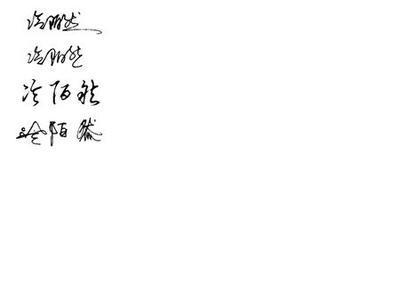 冷陌然
冷陌然
冷陌然
冷陌然